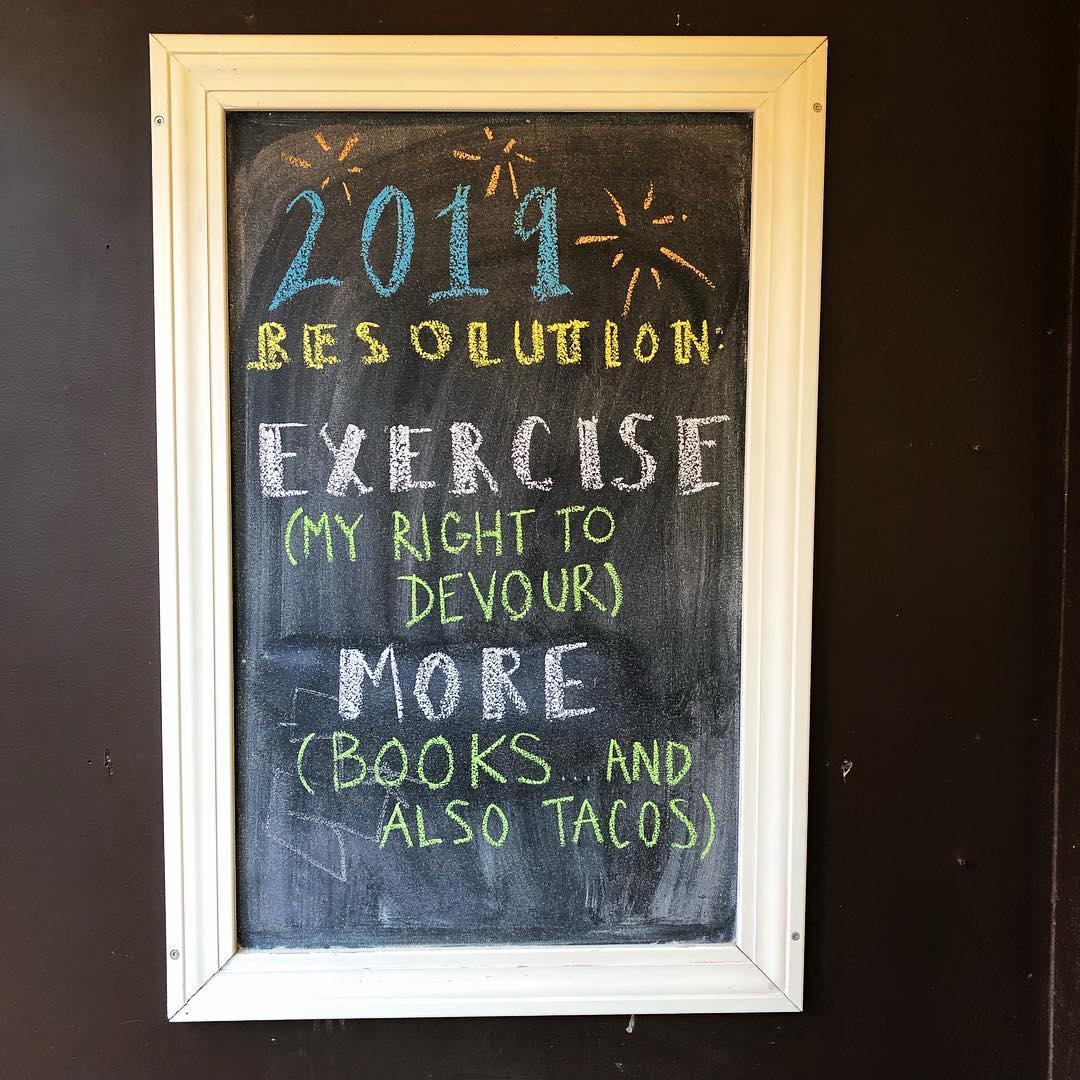 2019
RESOLUTION:
EXERCISE
(MY RIGHT TO
DEVOUR)
MORE
(BOOKS... AND
ALSO TACOS)